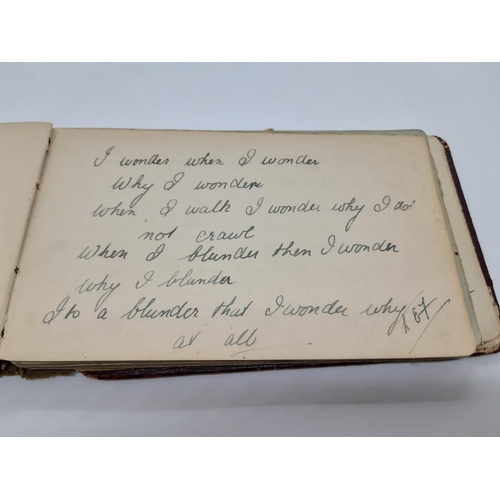 I wonder when I wonder
Why I wonder
when I walk I wonder why I do
not crawl
When I blunder then I wonder
why I blunder
Its a blunder that I wonder why
at all